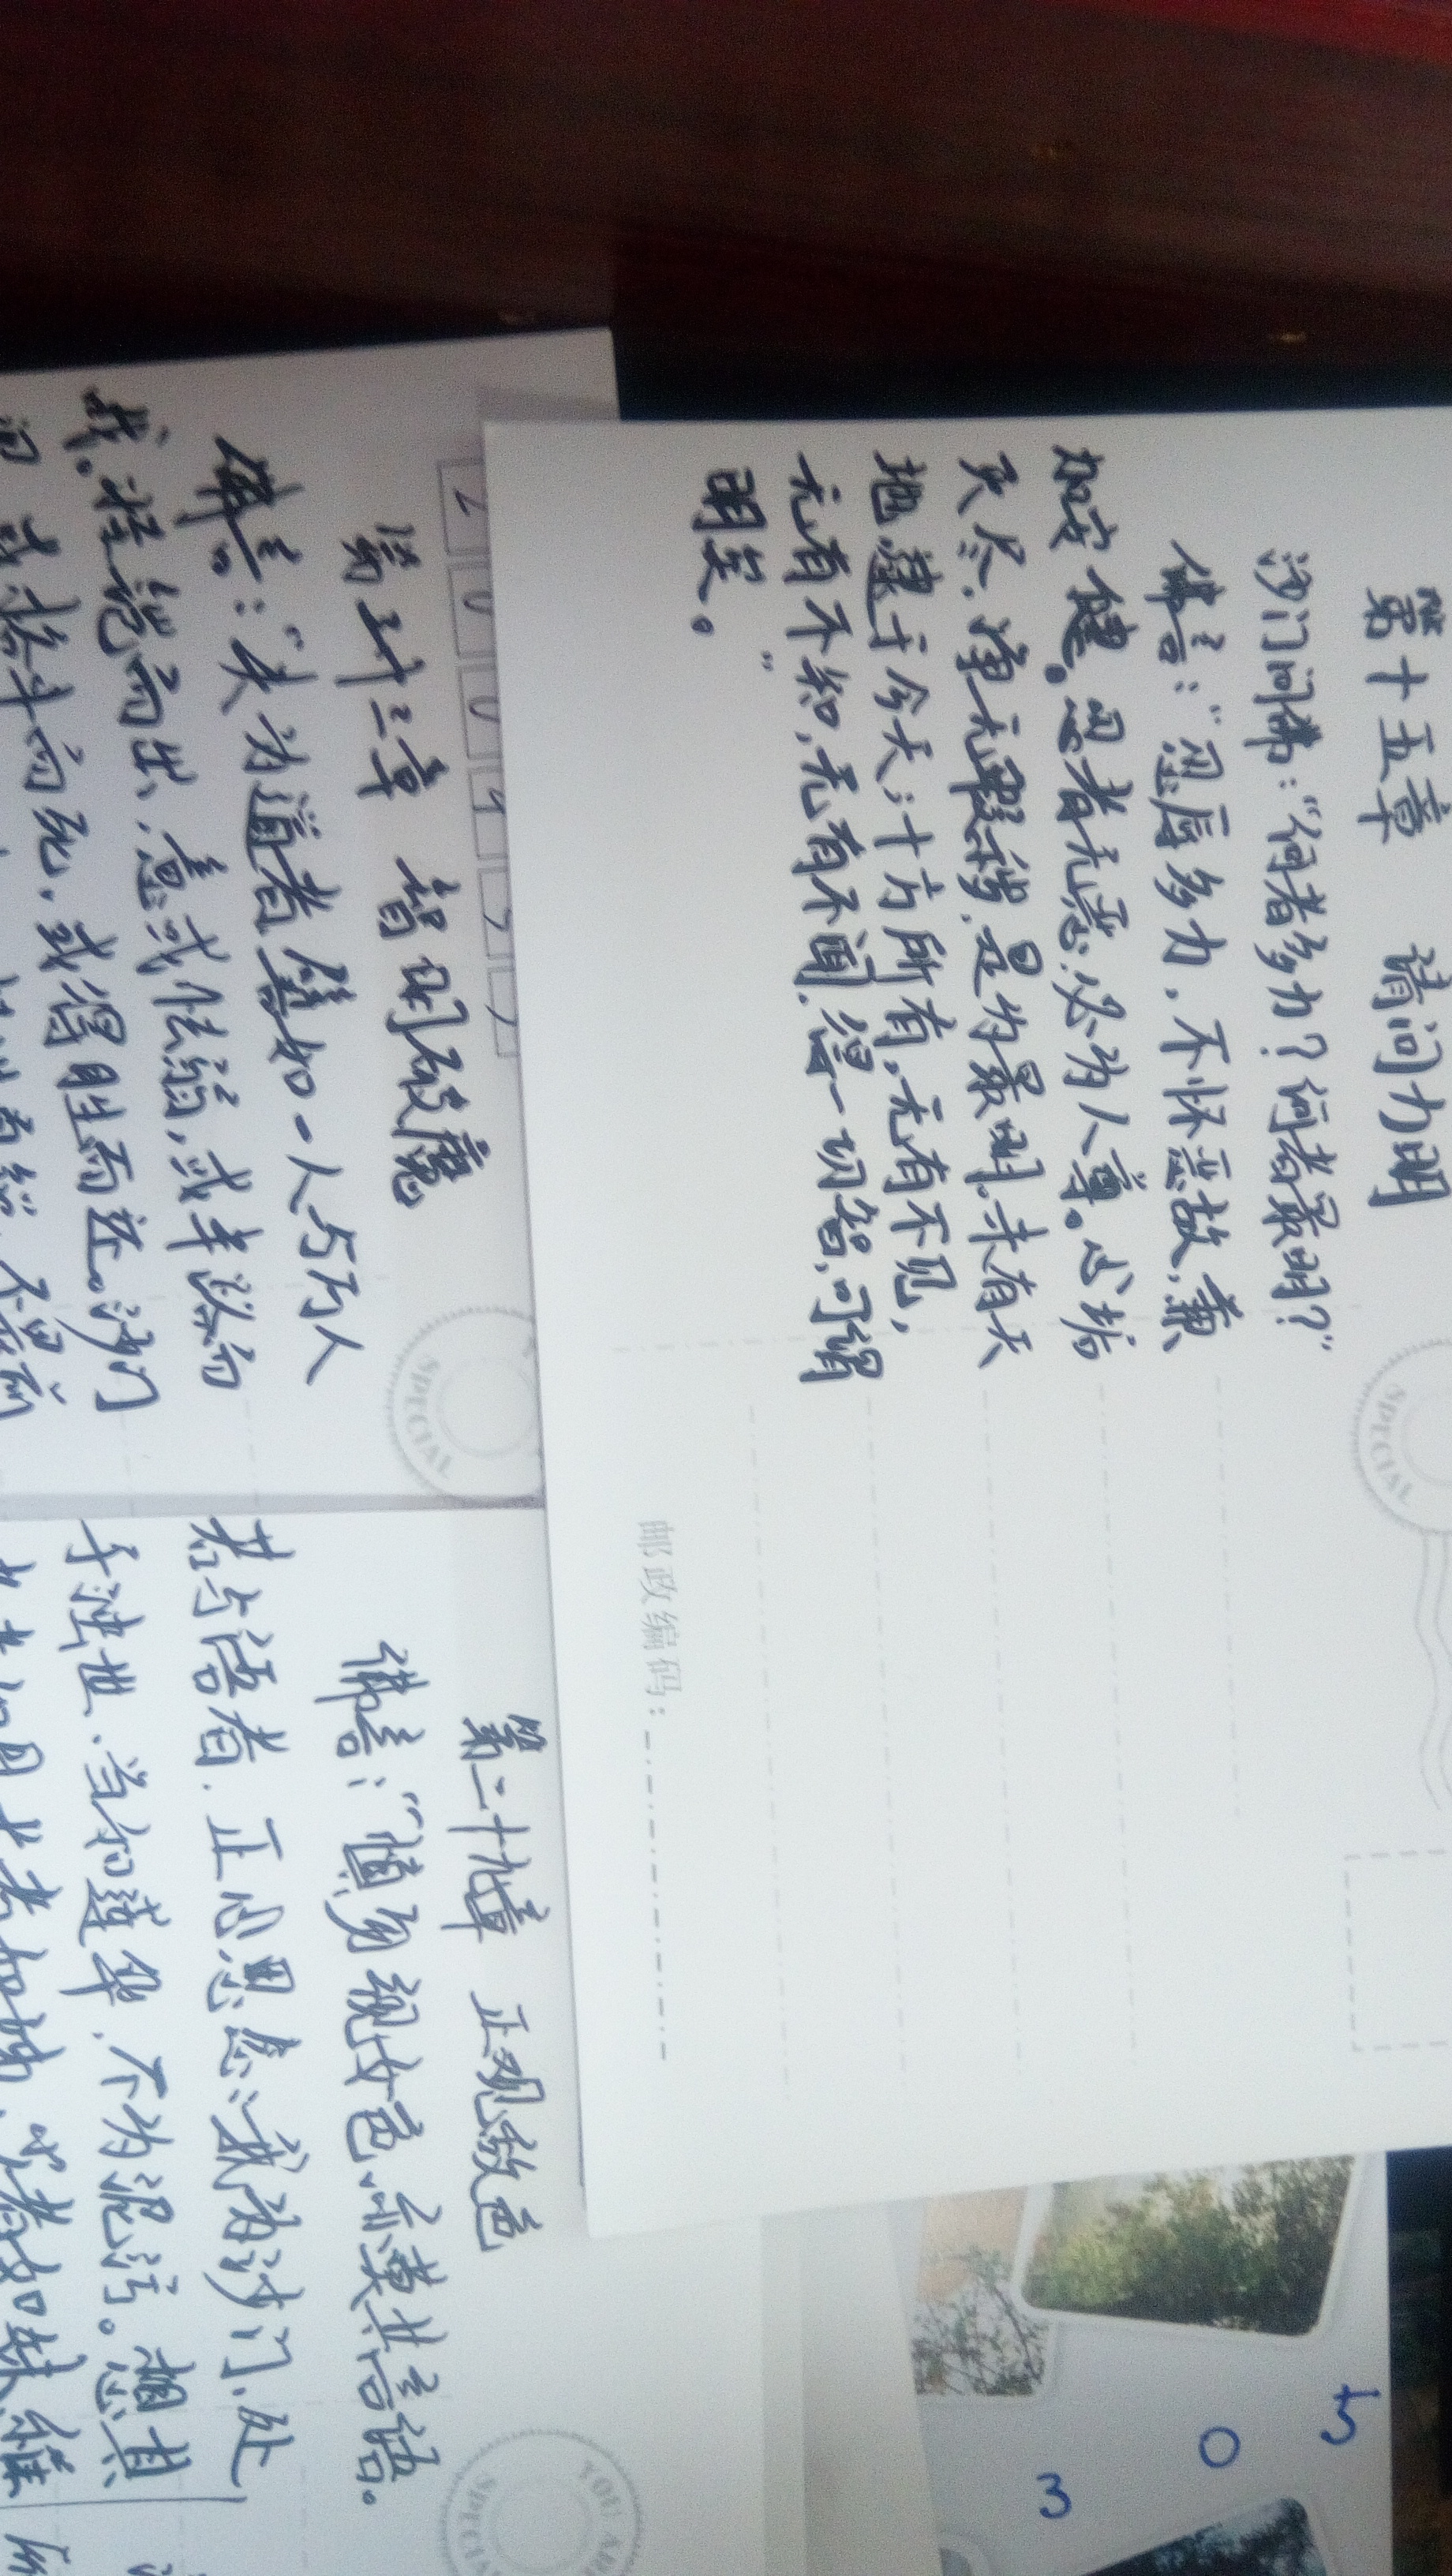 第十五章 请问力明
沙门问佛：“何者多力？何者最明？”
佛言：“忍辱多力，不怀恶故，兼
加安健。忍者无恶，必为人尊。心垢
灭尽，净无瑕秽，是为最明。未有天
地，逮于今天；十方所有，无有不见，
无有不知，无有不闻，得一切智，可谓
明矣。”
邮政编码：
SPECIAL
第卅三章 智明破魔
佛言：“夫为道者，譬如一人与万人
战。挂铠而出，意或怯弱，或半路而
或格斗而死，或得胜而还。沙门
SPECIAL
第二十九章 正观敌色
佛言：“慎勿视女色，亦莫共言语。
若与语者，正心思念：我为沙门，处
于浊世，当如莲华，不为泥污。想其
老者如母，长者如姊，少者如妹，稚
SPECIAL
YOU
3 0 5